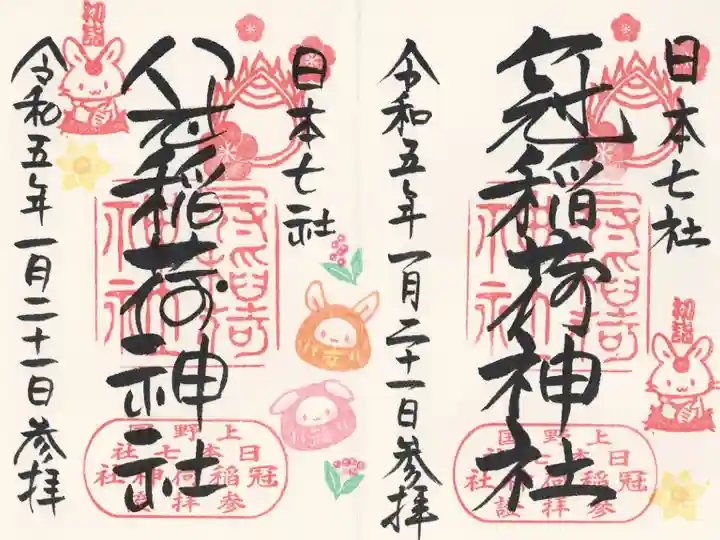 日本七社
冠稲荷神社
令和五年一月二十一日參拝
初詣
上野国
日本七社
冠稲荷神社
參拝證
日本七社
冠稲荷神社
令和五年一月二十一日參拝
初詣
上野国
日本七社
冠稲荷神社
參拝證